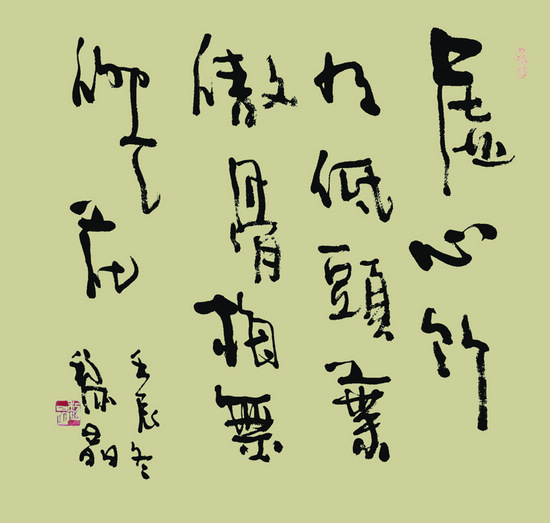 虚心竹
有低頭葉
傲骨梅無
仰面花
壬辰冬
晶